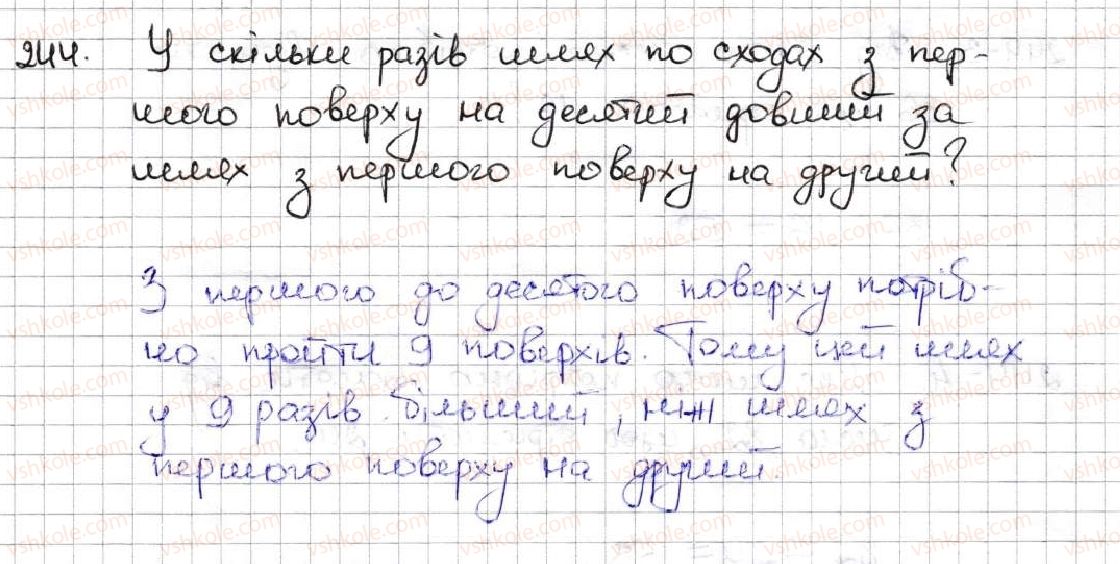 244. У скільки разів шлях по сходах з пер-
шого поверху на десятий довший за
шлях з першого поверху на другий?
З першого до десятого поверху потріб-
но пройти 9 поверхів. Тому цей шлях
у 9 разів більший, ніж шлях з
першого поверху на другий.